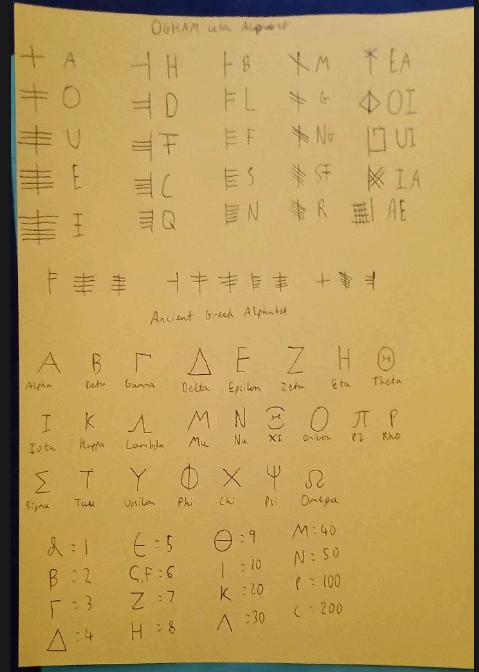 OGHAM Alphabet
ᚐ A ᚆ H ᚁ B ᚋ M ᚕ EA
ᚑ O ᚇ D ᚂ L ᚌ G ᚖ OI
ᚒ U ᚈ T ᚃ F ᚍ NG ᚗ UI
ᚓ E ᚉ C ᚄ S ᚎ SF ᚘ IA
ᚔ I ᚊ Q ᚅ N ᚏ R ᚙ AE
Ancient Greek Alphabet
Α Β Γ Δ Ε Ζ Η Θ
Alpha Beta Gamma Delta Epsilon Zeta Eta Theta
Ι Κ Λ Μ Ν Ξ Ο π Ρ
Iota Kappa Lambda Mu Nu XI Omicron PI Rho
Σ Τ Υ Φ Χ Ψ Ω
Sigma Tau Upsilon Phi Chi Psi Omega
α=1 Ε=5 Θ=9 Μ=40
Β=2 Ϛ,F=6 Ι=10 Ν=50
Γ=3 Ζ=7 Κ=20 Ρ=100
Δ=4 Η=8 Λ=30 C=200